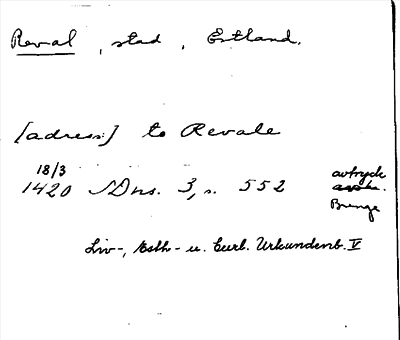 Reval, stad, Estland.
[adress:] to Revale
18/3
1420 SDns. 3, s. 552 avtryck
Bunge
Liv-, Esth- u. Curl. Urkundenb. V